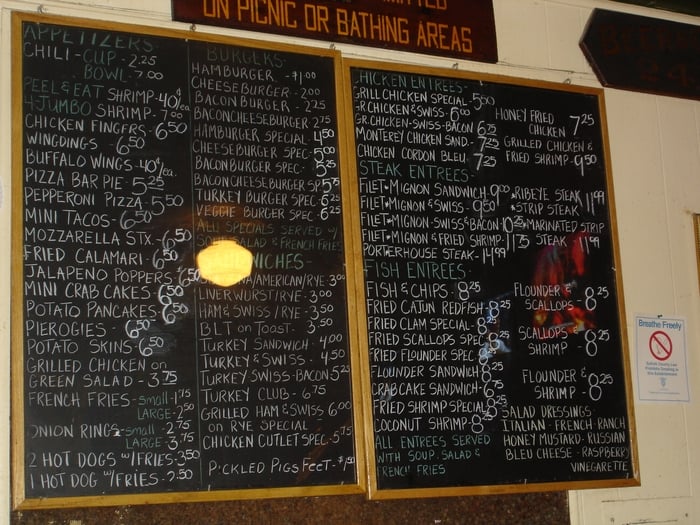 ON PICNIC OR BATHING AREAS
APPETIZERS
CHILI - CUP - 2.25
BOWL - 7.00
PEEL & EAT SHRIMP - 40¢/ea
4 JUMBO SHRIMP - 7.00
CHICKEN FINGERS - 6.50
WINGDINGS - 6.50
BUFFALO WINGS - 40¢/ea
PIZZA BAR PIE - 5.25
PEPPERONI PIZZA - 5.50
MINI TACOS - 6.50
MOZZARELLA STX - 6.50
FRIED CALAMARI - 6.50
JALAPENO POPPERS - 6.50
MINI CRAB CAKES - 6.50
POTATO PANCAKES - 6.50
PIEROGIES - 6.50
POTATO SKINS - 6.50
GRILLED CHICKEN on
GREEN SALAD - 3.75
FRENCH FRIES - small - 1.75
LARGE - 2.50
ONION RINGS - small - 2.75
LARGE - 3.75
2 HOT DOGS w/FRIES - 3.50
1 HOT DOG w/FRIES - 2.50
BURGERS
HAMBURGER - $1.00
CHEESEBURGER - 2.00
BACON BURGER - 2.25
BACONCHEESEBURGER 2.75
HAMBURGER SPECIAL 4.50
CHEESEBURGER SPEC - 5.00
BACONBURGER SPEC - 5.25
BACON CHEESEBURGER SP 5.75
TURKEY BURGER SPEC - 6.25
VEGGIE BURGER SPEC - 6.25
ALL SPECIALS SERVED w/
SOUP, SALAD & FRENCH FRIES
NICHES -
NA/AMERICAN/RYE 3.00
LIVERWURST/RYE - 3.00
HAM & SWISS / RYE - 3.50
BLT on TOAST - 3.50
TURKEY SANDWICH - 4.00
TURKEY & SWISS - 4.50
TURKEY-SWISS-BACON 5.25
TURKEY CLUB - 6.75
GRILLED HAM & SWISS 6.00
on RYE SPECIAL
CHICKEN CUTLET SPEC - 5.75
PICKLED PIGS FEET - $1.50
CHICKEN ENTREES -
GRILL CHICKEN SPECIAL - 5.50
GR.CHICKEN & SWISS - 6.00
GR.CHICKEN-SWISS-BACON 6.25
MONTEREY CHICKEN SAND. - 7.25
CHICKEN CORDON BLEU - 7.25
HONEY FRIED
CHICKEN 7.25
GRILLED CHICKEN &
FRIED SHRIMP - 9.50
STEAK ENTREES -
FILET MIGNON SANDWICH - 9.00
FILET MIGNON & SWISS - 9.50
FILET MIGNON-SWISS & BACON - 10.25
FILET MIGNON & FRIED SHRIMP - 11.75
PORTERHOUSE STEAK - 14.99
RIBEYE STEAK 11.99
STRIP STEAK
MARINATED STRIP
STEAK - 11.99
FISH ENTREES -
FISH & CHIPS - 8.25
FRIED CAJUN REDFISH - 8.25
FRIED CLAM SPECIAL - 8.25
FRIED SCALLOPS SPEC - 8.25
FRIED FLOUNDER SPEC - 8.25
FLOUNDER SANDWICH - 8.25
CRAB CAKE SANDWICH - 6.75
FRIED SHRIMP SPECIAL - 8.25
COCONUT SHRIMP - 8.25
ALL ENTREES SERVED
WITH SOUP, SALAD &
FRENCH FRIES
FLOUNDER &
SCALLOPS - 8.25
SCALLOPS &
SHRIMP - 8.25
FLOUNDER &
SHRIMP - 8.25
SALAD DRESSINGS -
ITALIAN - FRENCH - RANCH
HONEY MUSTARD - RUSSIAN
BLEU CHEESE - RASPBERRY
VINEGARETTE
Breathe Freely